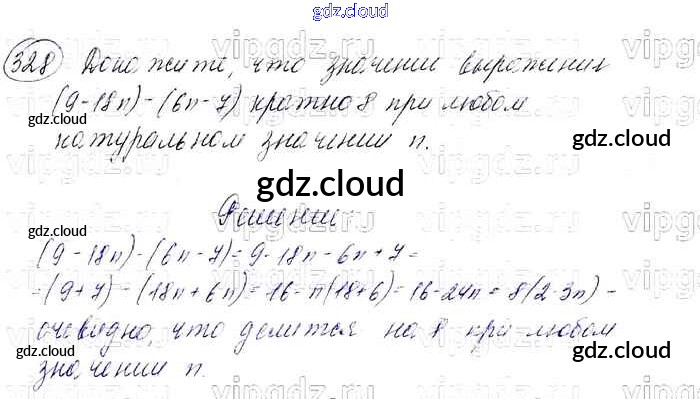 gdz.cloud
328 Докажите, что значении выражения
(9-18n)-(6n-7) кратно 8 при любом
натуральном значении n.
gdz.cloud
gdz.cloud
gdz.cloud
Решении:
(9-18n)-(6n-7)=9-18n-6n+7=
=(9+7)-(18n+6n)=16-n(18+6)=16-24n=8(2-3n)-
очевидно, что делится на 8 при любом
gdz.cloud
gdz.cloud
значении n.